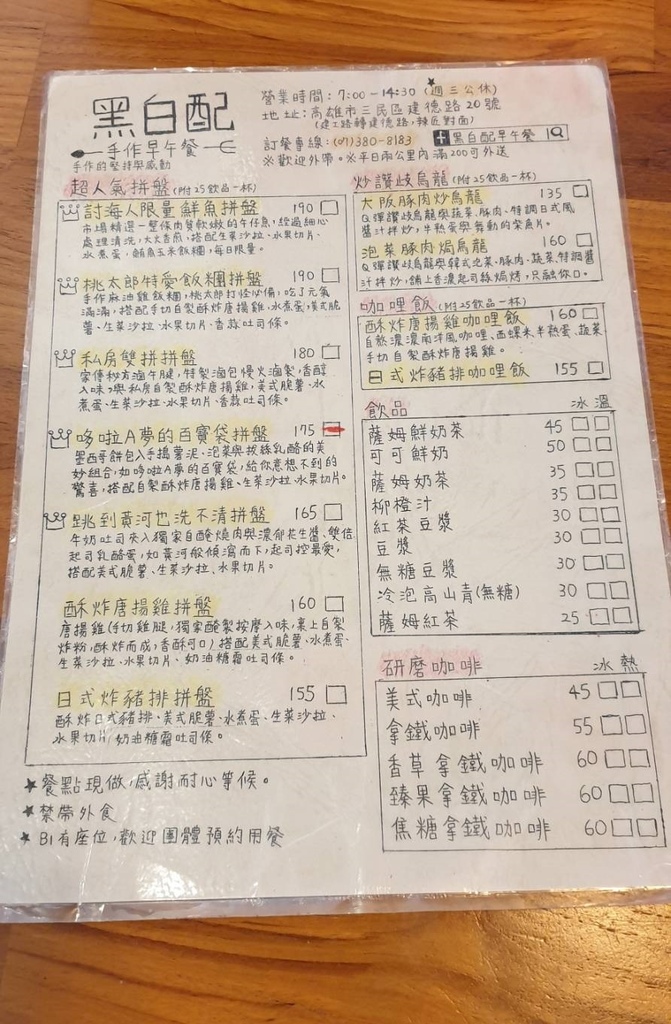 黑白配
手作早午餐
手作的堅持與感動
營業時間：7:00－14:30（週三公休）
地址：高雄市三民區建德路20號
（建工路轉建德路，辣匠對面）
訂餐專線：(07)380-8183
黑白配早午餐
※歡迎外帶。※平日兩公里內滿200可外送
超人氣拼盤(附25飲品一杯)
討海人限量鮮魚拼盤 190
市場精選一整條肉質軟嫩的午仔魚，經過細心
處理清洗，大火香煎，搭配生菜沙拉、水果切片、
水煮蛋、鮪魚玉米飯糰，每日限量。
桃太郎特愛飯糰拼盤 190
手作麻油雞飯糰，桃太郎打怪必備，吃了元氣
滿滿，搭配手切自製酥炸唐揚雞、水煮蛋、美式脆
薯、生菜沙拉、水果切片、香蒜吐司條。
私房雙拼拼盤 180
家傳秘方滷牛腱，特製滷包慢火滷製，香醇
入味，與私房自製酥炸唐揚雞，美式脆薯、水
煮蛋、生菜沙拉、水果切片、香蒜吐司條。
哆啦A夢的百寶袋拼盤 175
墨西哥餅包入手搗薯泥、泡菜與拔絲乳酪的美
妙組合，如哆啦A夢的百寶袋，給你意想不到的
驚喜，搭配自製酥炸唐揚雞、生菜沙拉、水果切片。
跳到黃河也洗不清拼盤 165
牛奶吐司夾入獨家自醃燒肉與濃郁花生醬、雙倍
起司乳酪蛋，如黃河般傾瀉而下，起司控最愛，
搭配美式脆薯、生菜沙拉、水果切片。
酥炸唐揚雞拼盤 160
唐揚雞(手切雞腿，獨家醃製按摩入味，裹上自製
炸粉，酥炸而成，香酥可口)搭配美式脆薯、水煮蛋、
生菜沙拉、水果切片、奶油糖霜吐司條。
日式炸豬排拼盤 155
酥炸日式豬排、美式脆薯、水煮蛋、生菜沙拉、
水果切片、奶油糖霜吐司條。
★餐點現做，感謝耐心等候。
★禁帶外食
★B1有座位，歡迎團體預約用餐
炒讚歧烏龍(附25飲品一杯)
大阪豚肉炒烏龍 135
Q彈讚歧烏龍與蔬菜、豚肉、特調日式風
醬汁拌炒，半熟蛋與舞動的柴魚片。
泡菜豚肉焗烏龍 160
Q彈讚歧烏龍與韓式泡菜、豚肉、蔬菜、特調醬
汁拌炒，鋪上香濃起司絲焗烤，只融你口。
咖哩飯(附25飲品一杯)
酥炸唐揚雞咖哩飯 160
自熬濃濃南洋風咖哩、西螺米、半熟蛋、蔬菜
手切自製酥炸唐揚雞。
日式炸豬排咖哩飯 155
飲品 冰 溫
薩姆鮮奶茶 45
可可鮮奶 50
薩姆奶茶 35
柳橙汁 35
紅茶豆漿 30
豆漿 30
無糖豆漿 30
冷泡高山青(無糖) 30
薩姆紅茶 25
研磨咖啡 冰 熱
美式咖啡 45
拿鐵咖啡 55
香草拿鐵咖啡 60
臻果拿鐵咖啡 60
焦糖拿鐵咖啡 60